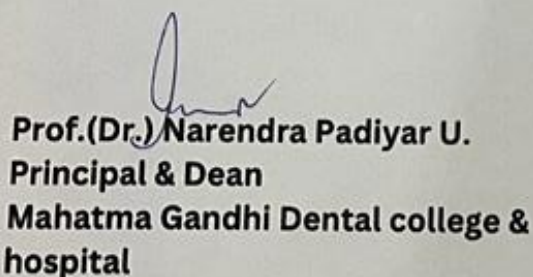 Prof.(Dr.) Narendra Padiyar U.
Principal & Dean
Mahatma Gandhi Dental college &
hospital